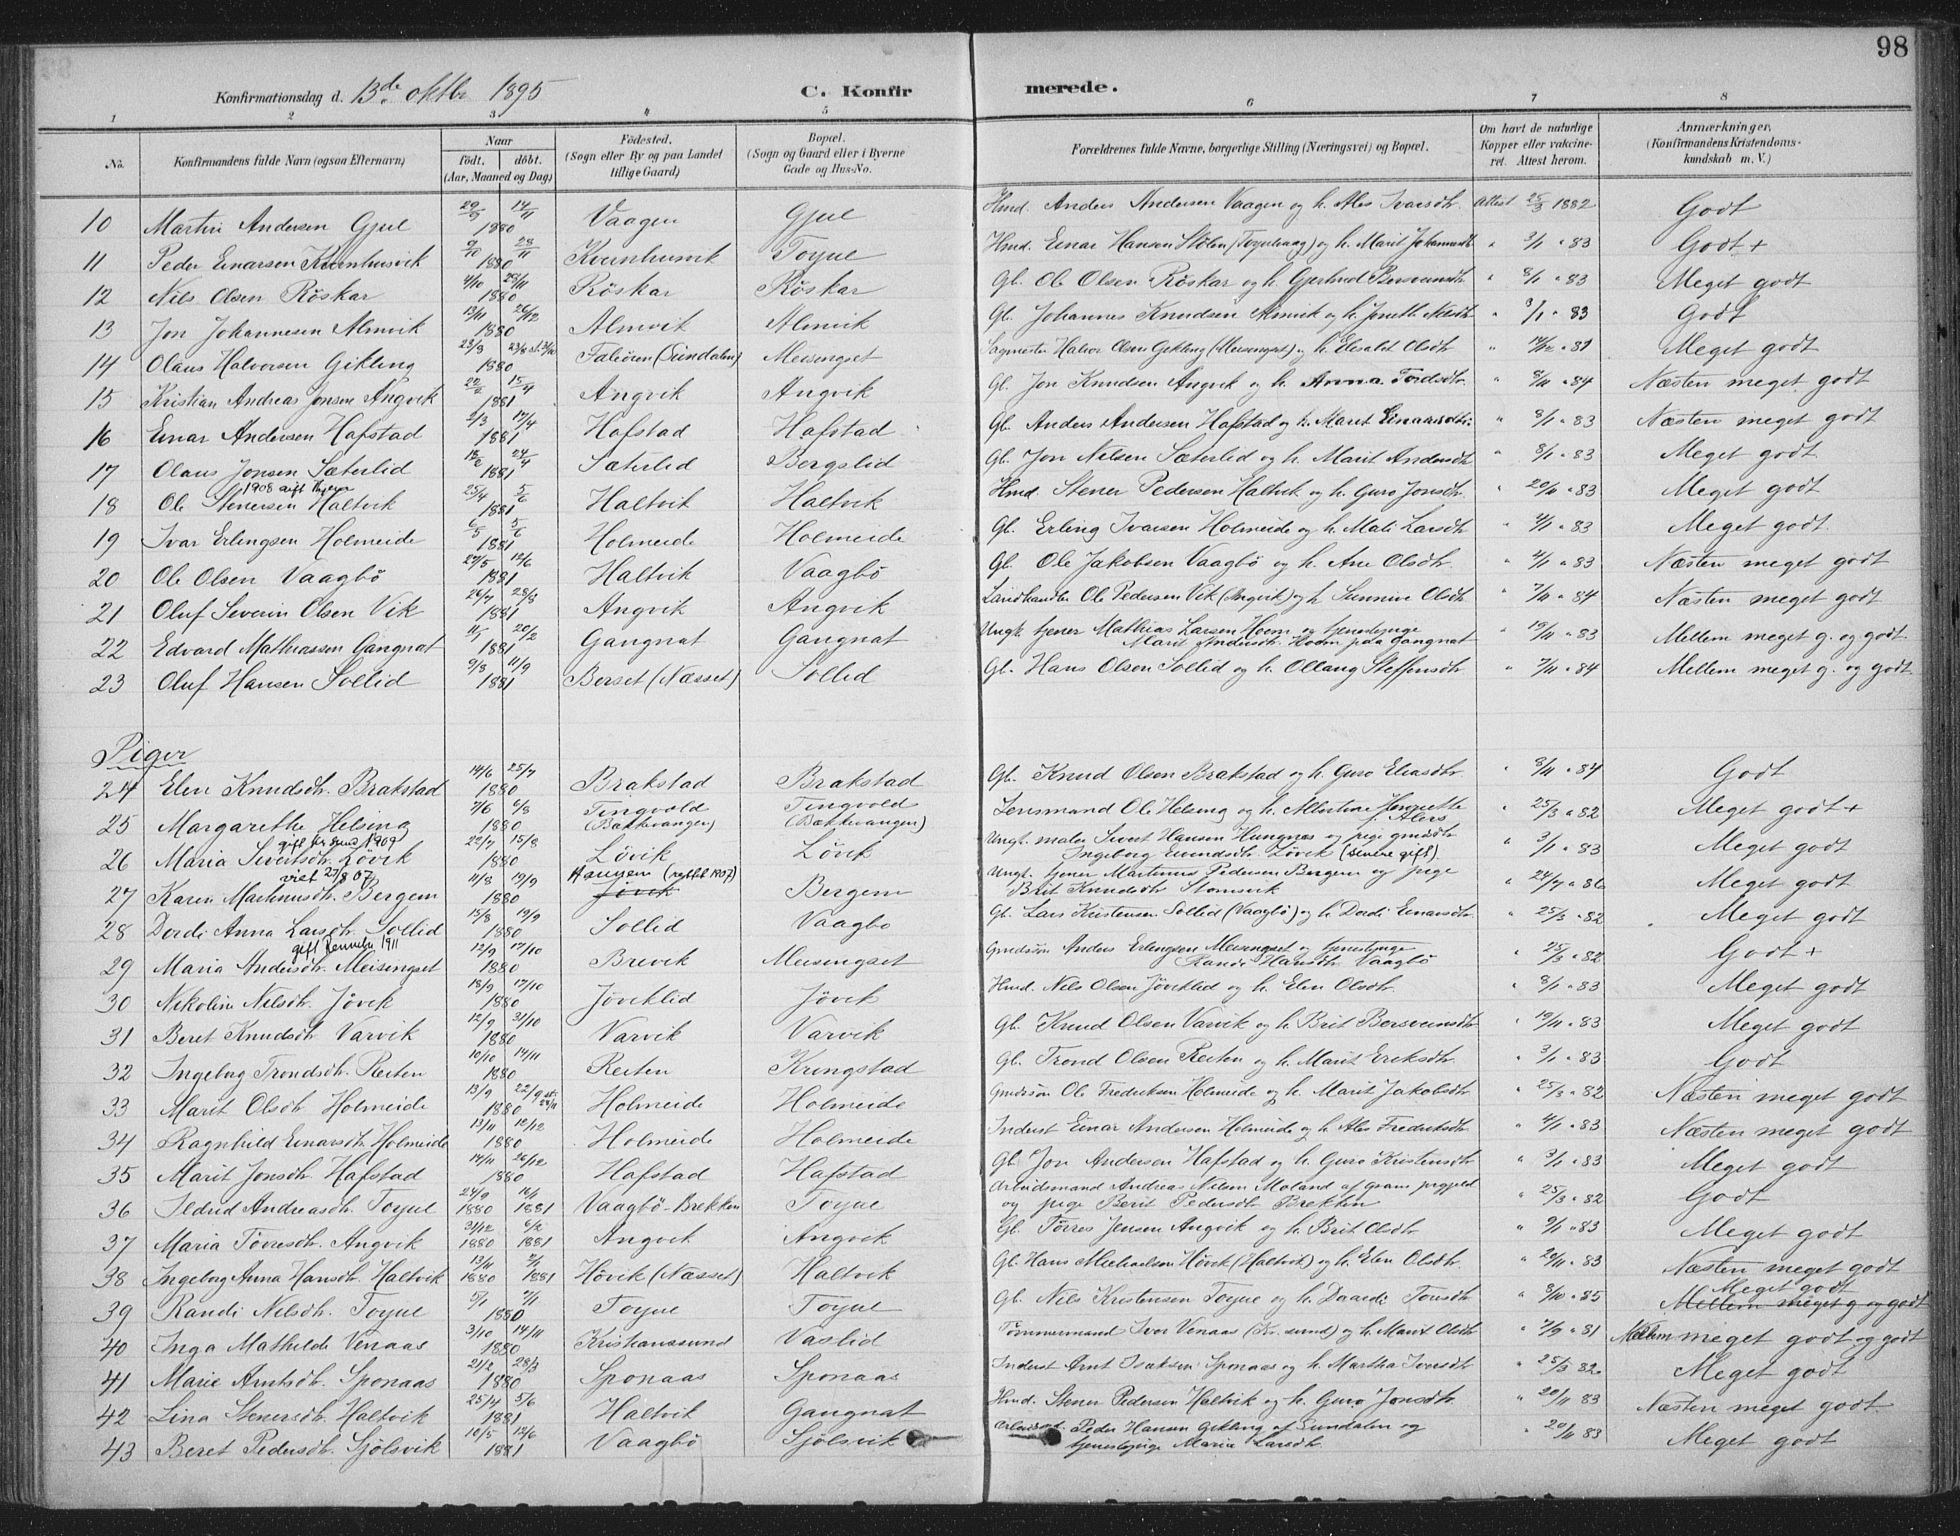 98
Konfirmationsdag d. 13de oktbr 1895 C. Konfirmerede.
1 2 3 4 5 6 7 8
No. Konfirmandens fulde Navn (ogsaa Efternavn) Naar födt. döbt. (Aar, Maaned og Dag) Födested. (Sogn eller By og paa Landet tillige Gaard) Bopæl. (Sogn og Gaard eller i Byerne Gade og Hus-No. Forældrenes fulde Navne, borgerlige Stilling (Næringsvei) og Bopæl. Om havt de naturlige Kopper eller vakcineret. Attest herom. Anmærkninger. (Konfirmandens Kristendomskundskab m. V.)
10 Martin Andersen Gjul 29/9 14/11 1880 Vaagen Gjul Hmd. Anders Andersen Vaagen og h. Ales Ivarsdtr. Attest 25/3 1882 Godt
11 Peder Einarsen Kvenhusvik 9/10 28/11 1880 Kvenhusvik Toyue Hmd. Einar Hansen Stölen (Toyuehaug) og h. Marit Johannesdtr " 3/1 " 83 Godt +
12 Nils Olsen Röskar 4/10 28/11 1880 Röskar Röskar Gb. Ole Olsen Röskar og h. Gjertrud Bersveinsdtr " 8/1 " 83 Meget godt
13 Jon Johannesen Almvik 13/11 26/12 1880 Almvik Almvik Gb. Johannes Knudsen Almvik og h. Jonetta Nilsdtr " 3/1 " 83 Godt
14 Olaus Halvorsen Gikling 23/3 1880 Faleören (Sundalen) Meisingset Sagmester Halvor Olsen Gikling (Meisingset) og h. Elisabet Olsdtr " 14/12 " 81 Meget godt
15 Kristian Andreas Jonsen Angvik 22/2 15/4 1881 Angvik Angvik Gb. Jon Knudsen Angvik og h. Anna Tordsdtr " 8/11 " 84 Næsten meget godt
16 Einar Andersen Hafstad 2/3 17/4 1881 Hafstad Hafstad Gb. Anders Andersen Hafstad og h. Marit Einarsdtr: " 8/1 " 83 Næsten meget godt
17 Olaus Jonsen Sæterlid 18/2 24/4 1881 Sæterlid Bergslid Gb. Jon Nilsen Sæterlid og h. Marit Andersdtr " 8/1 " 83 Meget godt
1908 gift
18 Ole Stenersen Haltvik 25/4 5/6 1881 Haltvik Haltvik Hmd. Stener Pedersen Haltvik og h. Guro Jonsdtr. " 20/11 " 83 Meget godt
19 Ivar Erlingsen Holmeide 6/5 5/6 1881 Holmeide Holmeide Gb. Erling Ivarsen Holmeide og h. Mali Larsdtr " 4/1 " 83 Meget godt.
20 Ole Olsen Vaagbö 27/5 12/6 1881 Haltvik Vaagbö Gb. Ole Jakobsen Vaagbö og h. Ane Olsdtr. " 4/1 " 83 Næsten meget godt
21 Oluf Severin Olsen Vik 26/7 28/8 1881 Angvik Angvik Landhandler Ole Pedersen Vik (Angvik) og h. Sunnive Olsdtr " 7/11 " 84 Næsten meget godt
22 Edvard Mathiassen Gangnat 11/1 20/2 1881 Gangnat Gangnat Ungk. tjener Mathias Larsen Hoem og tjenestepige " 19/11 " 83 Mellem meget g. og godt.
Marit Andersdtr. Hoem paa Gangnat
23 Oluf Hansen Sollid 9/8 11/9 1881 Berset (Næsset) Sollid Gb. Hans Olsen Sollid og h. Ollaug Steffensdtr " 7/11 " 84 Mellem meget g. og godt
Piger
24 Elen Knudsdtr. Brakstad 14/6 25/7 1880 Brakstad Brakstad Gb. Knud Olsen Brakstad og h. Guro Eliasdtr " 8/11 " 84 Godt
25 Margarethe Helsing 7/6 6/8 1880 Tingvold (Bakkevangen) Tingvold (Bakkevangen) Lensmand Ole Helsing og h. Albertine Henriette f. Alers " 25/3 " 82 Meget godt +
gift Kr.sund 1909
26 Maria Sivertsdtr. Lövik 22/7 15/8 1880 Lövik Lövik Ungk. maler Sivert Hansen Hungnæs og pige gmdsdtr " 3/1 " 83 Meget godt
Ingeborg Eivindsdtr. Lövik (senere gift)
viet 27/8 07
27 Karen Martinusdtr. Bergem 11/8 19/9 1880 Haugen (rettet 1907) Jövik Bergem Ungk. tjener Martinus Pedersen Bergem og pige " 24/7 " 86 Meget godt
Brit Knudsdtr Stomsvik
28 Dordi Anna Larsdtr. Sollid 15/8 19/9 1880 Sollid Vaagbö Gb. Lars Kristensen Sollid (Vaagbö) og h. Dordi Einarsdtr. " 25/3 " 82 Meget godt
gift 1911
29 Maria Andersdtr. Meisingset 12/9 17/10 1880 Brevik Meisingset Gmdssön Anders Erlingsen Meisingset og tjenestepige " 25/3 " 82 Godt +
Randi Hansdtr Vaagbö
30 Nikoline Nilsdtr. Jövik 18/9 17/10 1880 Jöviklid Jövik Hmd. Nils Olsen Jöviklid og h. Elen Olsdtr. " 8/1 " 83 Meget godt
31 Beret Knudsdtr. Varvik 12/9 31/10 1880 Varvik Varvik Gb. Knud Olsen Varvik og h. Brit Bersveinsdtr " 19/11 " 83 Meget godt
32 Ingeborg Trondsdtr. Reiten 10/10 14/11 1880 Reiten Kringstad Gb. Trond Olsen Reiten og h. Marit Eriksdtr. " 3/1 " 83 Godt
33 Marit Olsdtr. Holmeide 13/9 22/9 st. 28/11 1880 Holmeide Holmeide Gmdssön Ole Fredriksen Holmeide og h. Marit Jakobsdtr " 25/3 " 82 Næsten meget godt
34 Ragnhild Einarsdtr. Holmeide 13/11 12/12 1880 Holmeide Holmeide Inderst Einar Andersen Holmeide og h. Ales Fredriksdtr. " 4/1 " 83 Næsten meget godt
35 Marit Jonsdtr. Hafstad 14/11 26/12 1880 Hafstad Hafstad Gb. Jon Andersen Hafstad og h. Guro Kristensdtr " 3/1 " 83 Meget godt
36 Ildrid Andreasdtr. Toyue 24/9 1880 16/1 1881 Vaagbö-Brekken Toyue Arbeidsmand Andreas Nilsen Moland af Gram prgjeld " 25/3 " 82 Godt
og pige Berit Pedersdtr Brekken
37 Maria Törresdtr. Angvik 31/12 1880 6/2 1881 Angvik Angvik Gb. Törres Jensen Angvik og h. Brit Olsdtr. " 9/1 " 83 Meget godt
38 Ingeborg Anna Hansdtr. Haltvik 13/11 1880 2/1 1881 Hövik (Næsset) Haltvik Gb. Hans Michaelsen Hövik (Haltvik) og h. Elen Olsdtr. " 20/11 " 83 Næsten meget godt
39 Randi Nilsdtr. Toyue 1880 Toyue Toyue Gb. Nils Kristensen Toyue og h. Daardi Tomsdtr " 8/10 " 85 Meget godt Mellem meget g og godt
40 Inga Mathilde Venaas 3/10 14/11 1880 Kristianssund Vaslid Tømmermand Iver Venaas (Kr.sund) og h. Marit Olsdtr " 7/9 " 81 Mellem meget godt og godt
41 Marie Arntsdtr. Sponaas 21/2 28/3 1880 Sponaas Sponaas Inderst Arnt Isaksen Sponaas og h. Martha Iversdtr " 25/3 82 Meget godt
42 Lina Stenersdtr. Haltvik 25/4 5/6 1881 Haltvik Gangnat Hmd. Stener Pedersen Haltvik og h. Guro Jonsdtr. " 20/11 83 Næsten meget godt
43 Beret Pedersdtr. Sjölsvik 10/5 12/6 1881 Vaagbö Sjölsvik Arbeidsmd. Peder Hansen Gikling af Sundalen og " 20/11 83 Meget godt
tjenestepige Maria Larsdtr